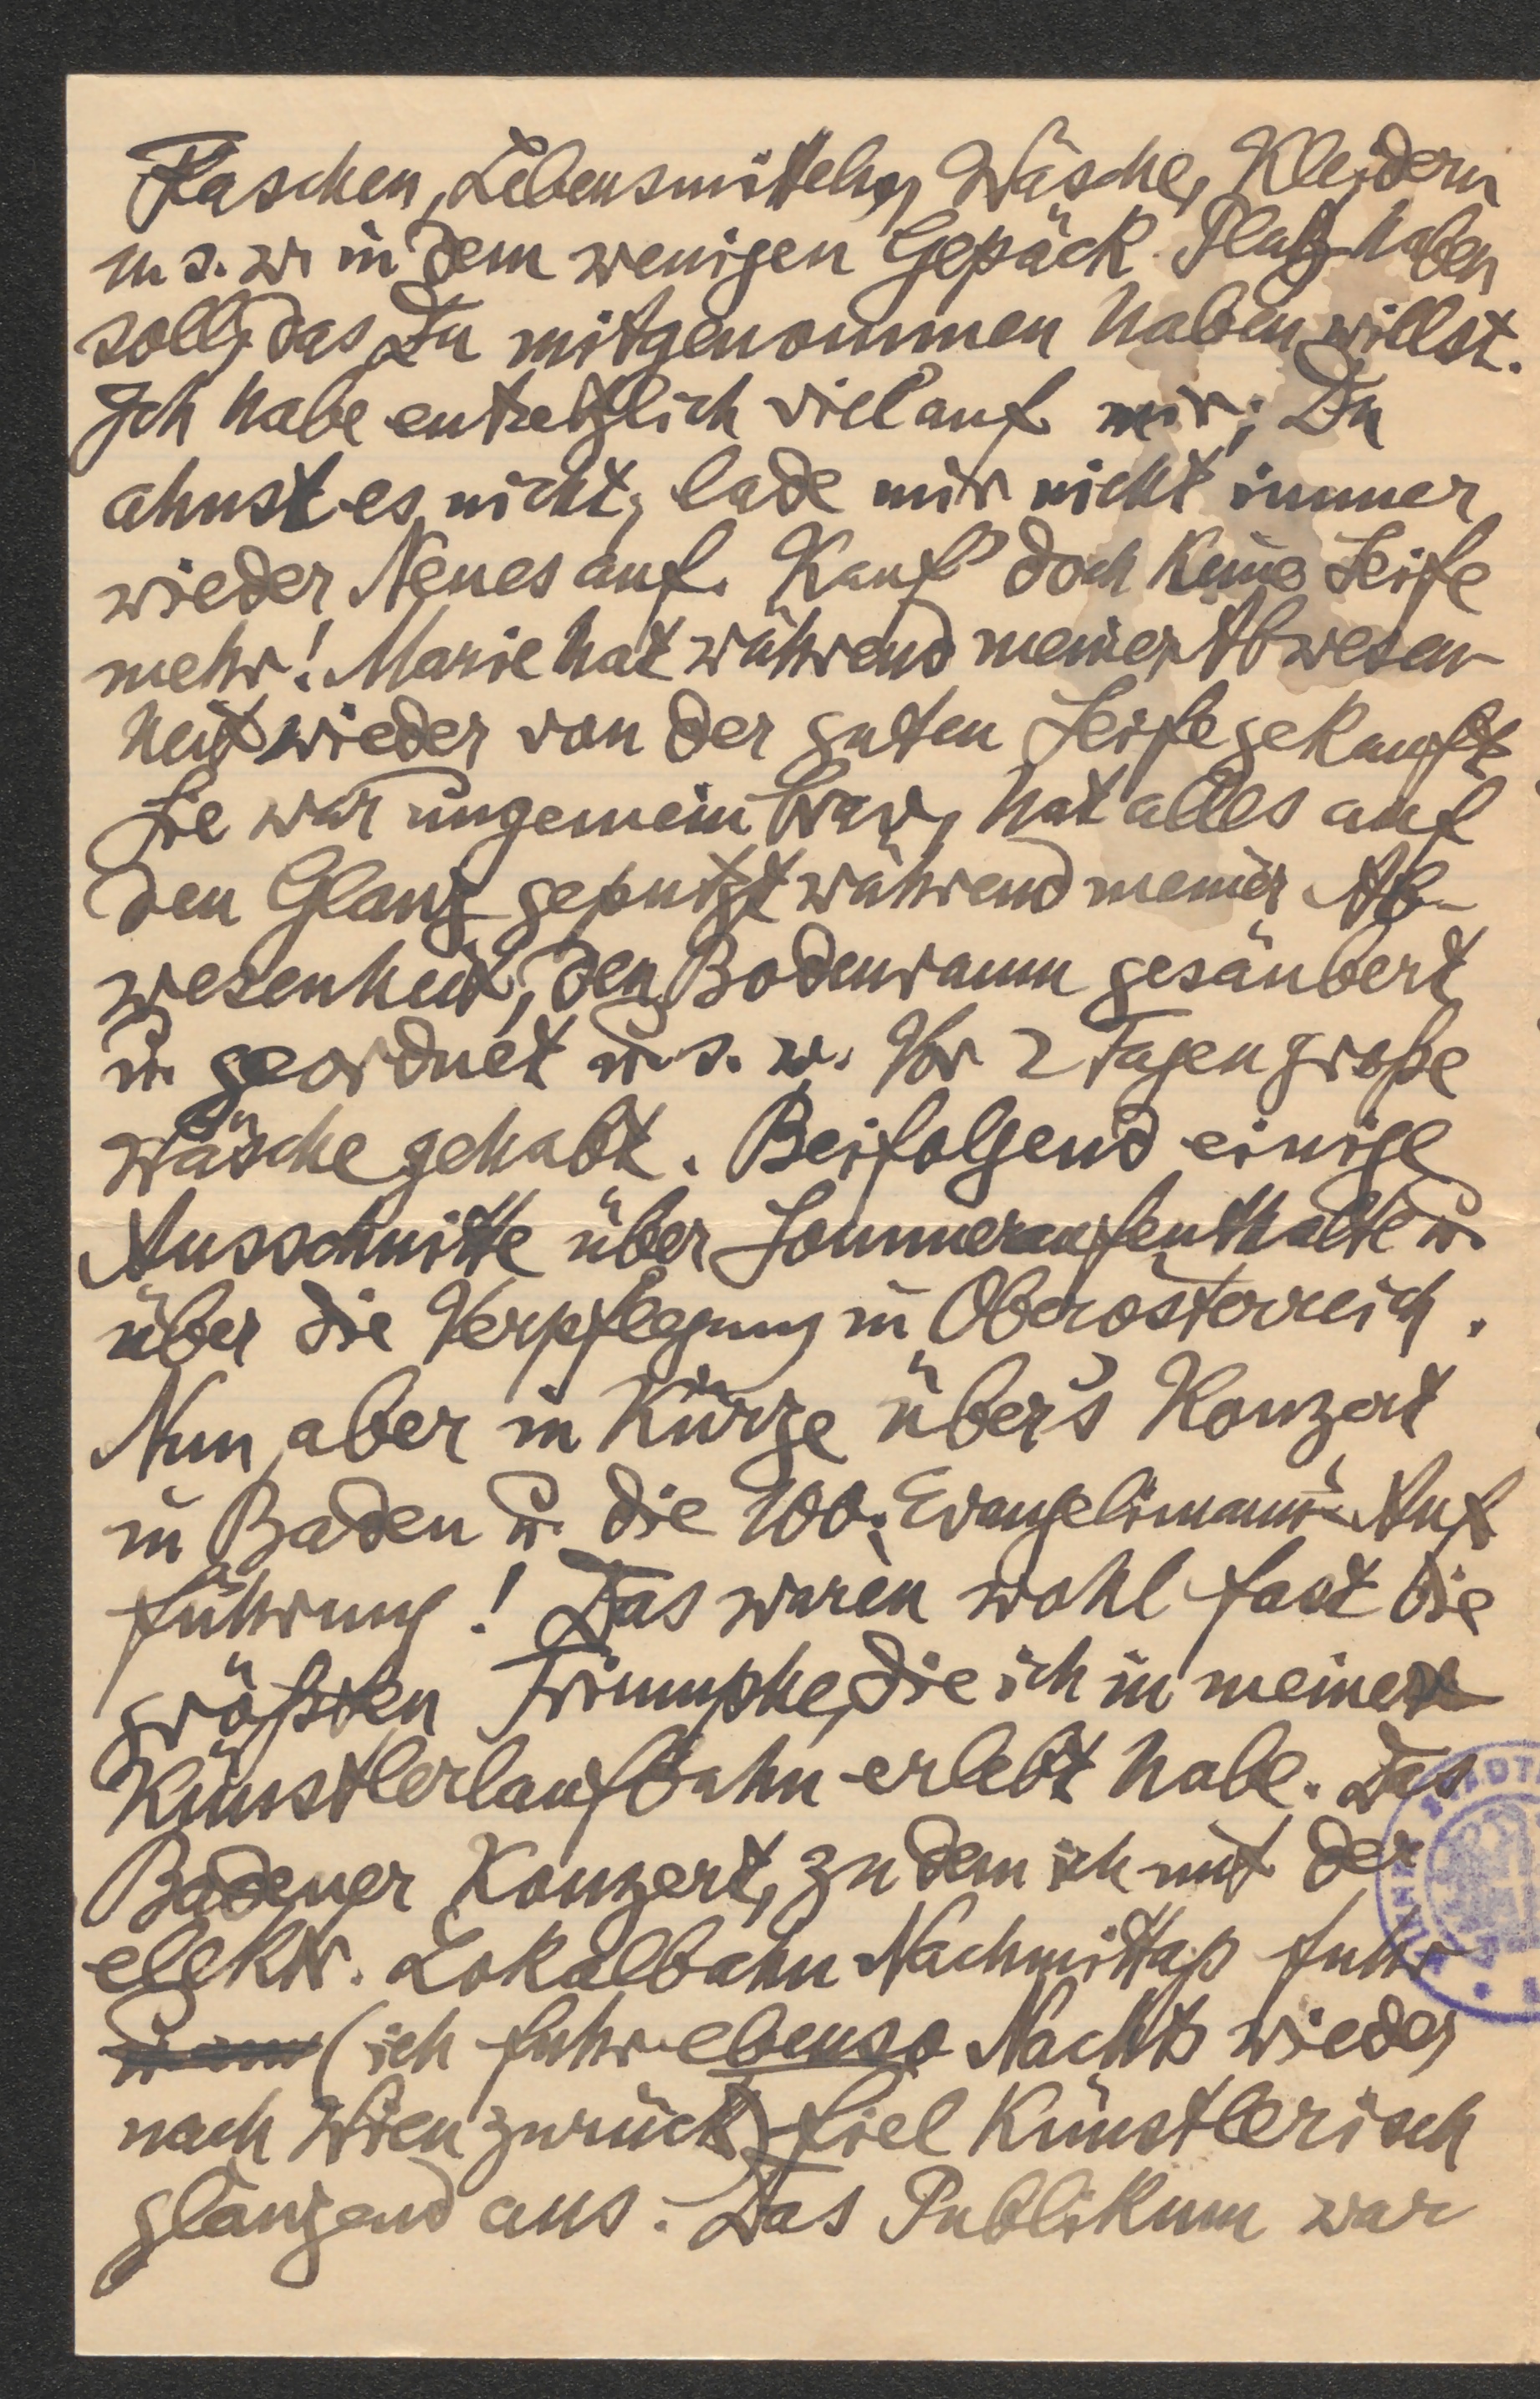 Flaschen, Lebensmitteln, Wäsche, Kleidern
u. s. w. in dem wenigen Gepäck Platz haben
soll, das Du mitgenommen haben willst.
Ich habe entsetzlich viel auf mir; Du
ahnst es nicht; lade mir nicht immer
wieder Neues auf. Kauf' doch keine Seife
mehr! Marie hat während meiner Abwesen-
heit wieder von der guten Seife gekauft.
Sie war ungemein brav, hat alles auf
den Glanz geputzt während meiner Ab-
wesenheit, den Bodenraum gesäubert
u. geordnet u. s. w. Vor 2 Tagen große
Wäsche gehabt. Beifolgend einige
Ausschnitte über Sommeraufenthalte u.
über die Verpflegung in Oberösterreich.
Nun aber in Kürze über's Konzert
in Baden u. die 100. Evangelimann-Auf
führung! Das waren wohl fast die
größten Triumphe, die ich in meiner
Künstlerlaufbahn erlebt habe. Das
Badener Konzert, zu dem ich mit der
elektr. Lokalbahn Nachmittags fuhr
(ich fuhr ebenso Nachts wieder
nach Wien zurück) fiel künstlerisch
glänzend aus. Das Publikum war